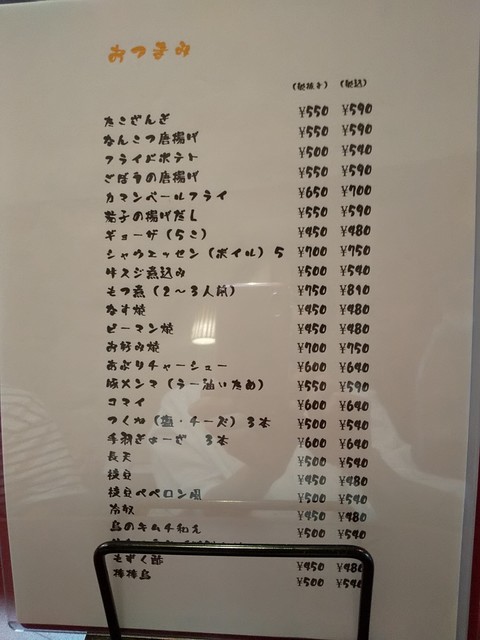 おつまみ
(税抜き) (税込)
たこざんぎ ¥550 ¥590
なんこつ唐揚げ ¥550 ¥590
フライドポテト ¥500 ¥540
ごぼうの唐揚げ ¥550 ¥590
カマンベールフライ ¥650 ¥700
茄子の揚げだし ¥550 ¥590
ギョーザ (5こ) ¥450 ¥480
シャウエッセン (ボイル) 5 ¥700 ¥750
牛スジ煮込み ¥500 ¥540
もつ煮 (2〜3人前) ¥750 ¥810
なす焼 ¥450 ¥480
ピーマン焼 ¥450 ¥480
お好み焼 ¥700 ¥750
あぶりチャーシュー ¥600 ¥640
豚メンマ (ラー油いため) ¥550 ¥590
コマイ ¥600 ¥640
つくね (塩・チーズ) 3本 ¥500 ¥540
手羽ぎょーざ 3本 ¥600 ¥640
長天 ¥500 ¥540
枝豆 ¥450 ¥480
枝豆ペペロン風 ¥500 ¥540
冷奴 ¥450 ¥480
鳥のキムチ和え ¥500 ¥540
もずく酢 ¥450 ¥480
棒棒鳥 ¥500 ¥540